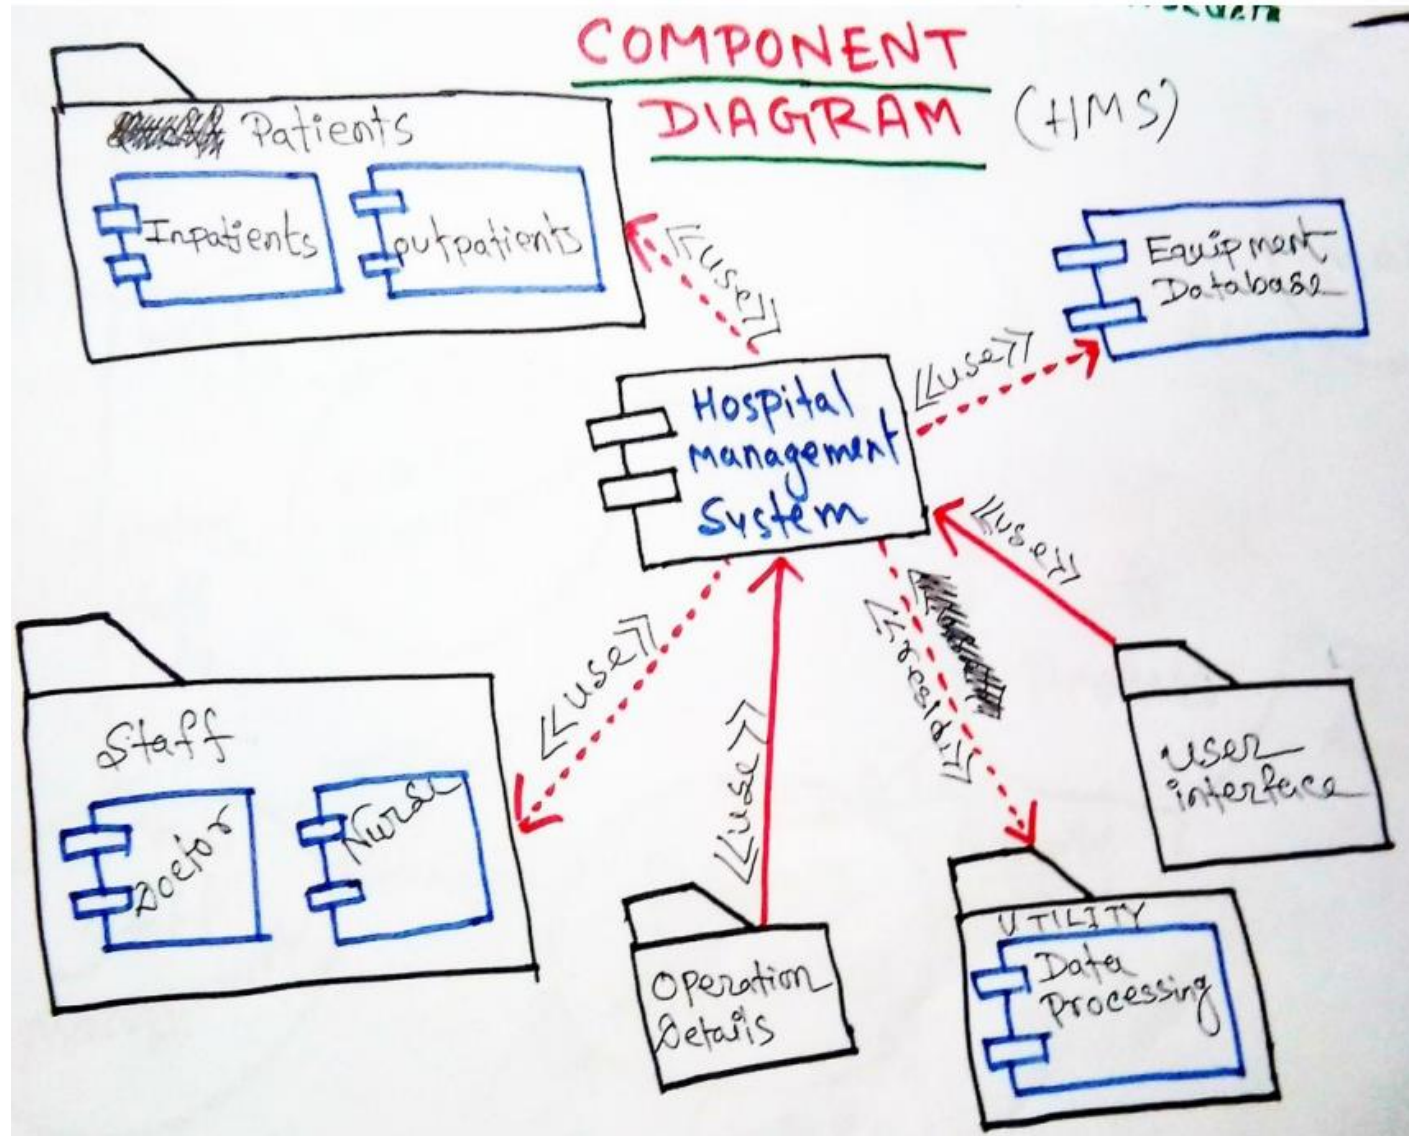 COMPONENT
DIAGRAM (HMS)
Patients
Inpatients
outpatients
<<use>>
Equipment
Database
<<use>>
Hospital
Management
System
<<use>>
<<use>>
<<use>>
<<resid>>
Staff
Doctor
Nurse
Operation
Details
User
interface
UTILITY
Data
Processing